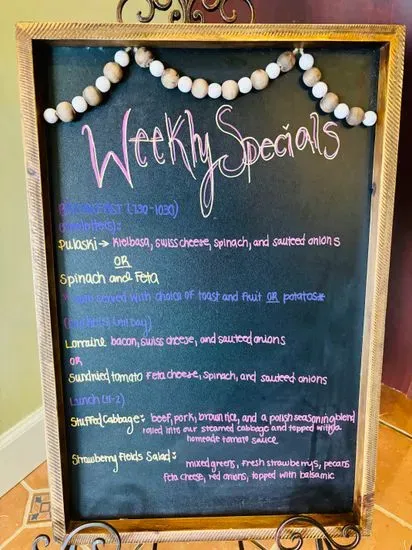 Weekly Specials
BREAKFAST (730-1030)
Omelette(s):
Pulaski → Kielbasa, swiss cheese, spinach, and sauteed onions
OR
Spinach and Feta
served with choice of toast and fruit OR potatoes
(All Day)
Lorraine bacon, swiss cheese, and sauteed onions
OR
Sundried tomato Feta cheese, spinach, and sauteed onions
Lunch (11-2)
Stuffed Cabbage: beef, pork, brown rice, and a polish seasoning blend
rolled into our steamed cabbage and topped with a
homeade tomato sauce
Strawberry Fields Salad: mixed greens, fresh strawberrys, pecans
feta cheese, red onions, topped with balsamic